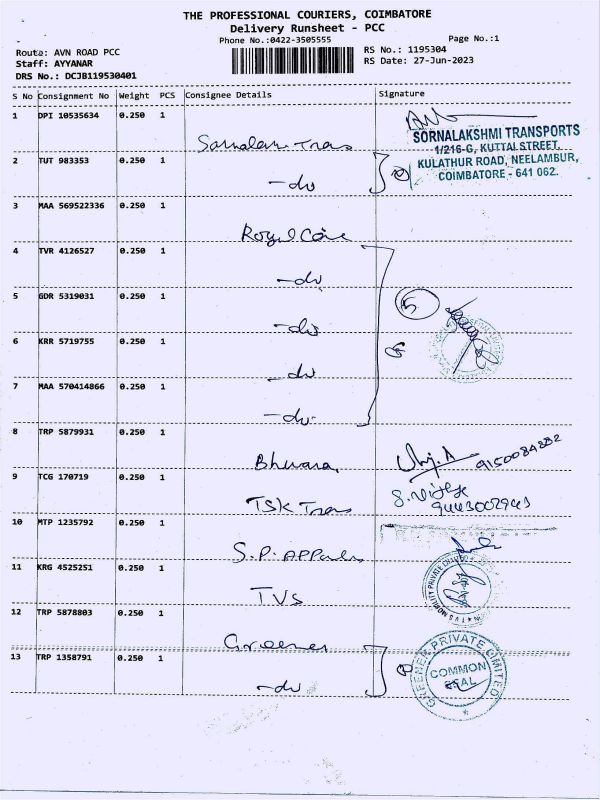 THE PROFESSIONAL COURIERS, COIMBATORE
Delivery Runsheet - PCC
Phone No.:0422-3505555
Page No.:1
Route: AVN ROAD PCC
Staff: AYYANAR
DRS No.: DCJB119530401
RS No.: 1195304
RS Date: 27-Jun-2023
S No Consignment No Weight PCS Consignee Details Signature
1 DPI 10535634 0.250 1
SORNALAKSHMI TRANSPORTS
1/216-G, KUTTAI STREET,
KULATHUR ROAD, NEELAMBUR,
COIMBATORE - 641 062.
2 TUT 983353 0.250 1
-do
3 MAA 569522336 0.250 1
Royal Care
4 TVR 4126527 0.250 1
-do
5 GDR 5319031 0.250 1
-do
5
6 KRR 5719755 0.250 1
-do
7 MAA 570414866 0.250 1
-do-
8 TRP 5879931 0.250 1
9150084882
9 TCG 170719 0.250 1
TSK Trans
9443002943
10 MTP 1235792 0.250 1
S.P. APPArels
11 KRG 4525251 0.250 1
TVS
TVS MOBILITY PRIVATE LIMITED
12 TRP 5878803 0.250 1
Greener
13 TRP 1358791 0.250 1
-do
GREENER PRIVATE LIMITED
COMMON
SEAL